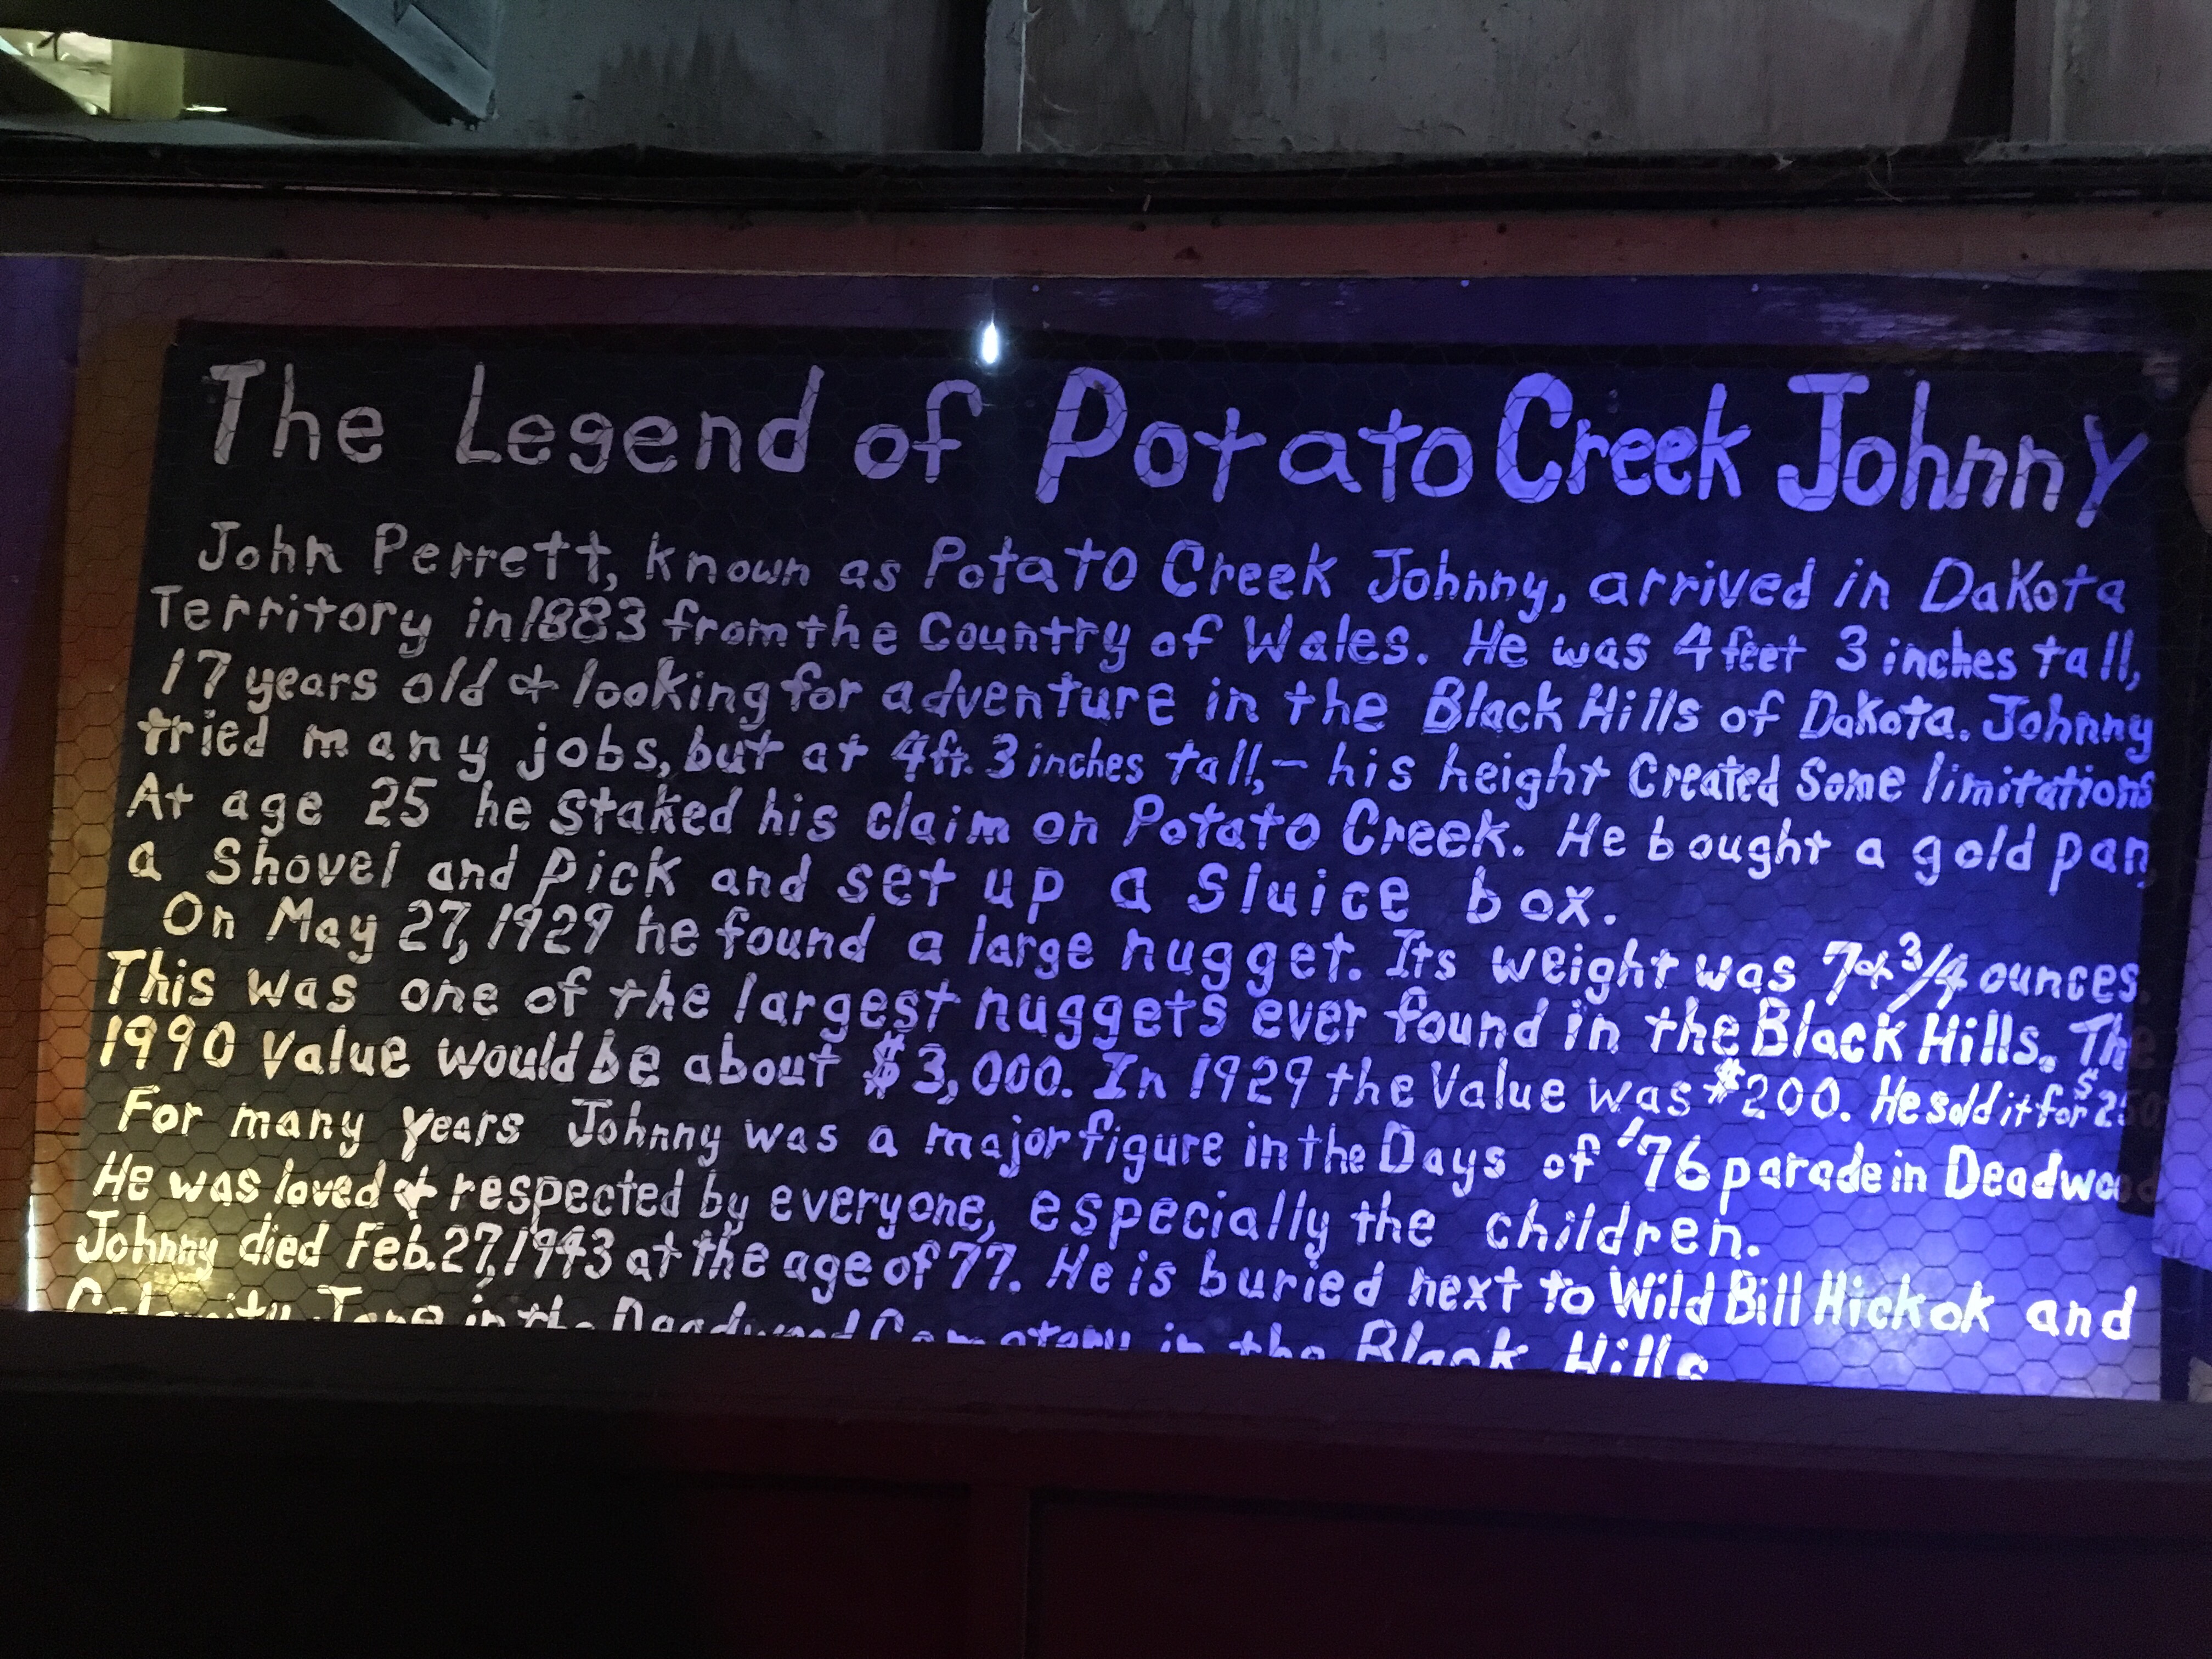 The Legend of Potato Creek Johnny
John Perrett, known as Potato Creek Johnny, arrived in Dakota
Territory in 1883 from the Country of Wales. He was 4 feet 3 inches tall,
17 years old & looking for adventure in the Black Hills of Dakota. Johnny
tried many jobs, but at 4 ft. 3 inches tall, - his height Created Some limitations
At age 25 he Staked his claim on Potato Creek. He bought a gold pan,
a Shovel and pick and set up a Sluice box.
On May 27, 1929 he found a large nugget. Its weight was 7 & 3/4 ounces.
This was one of the largest nuggets ever found in the Black Hills. The
1990 Value would be about $3,000. In 1929 the Value was $200. He sold it for $250
For many years Johnny was a major figure in the Days of '76 parade in Deadwood
He was loved & respected by everyone, especially the children.
Johnny died Feb. 27, 1943 at the age of 77. He is buried next to Wild Bill Hickok and
Calamity Jane in the Deadwood Cemetery in the Black Hills